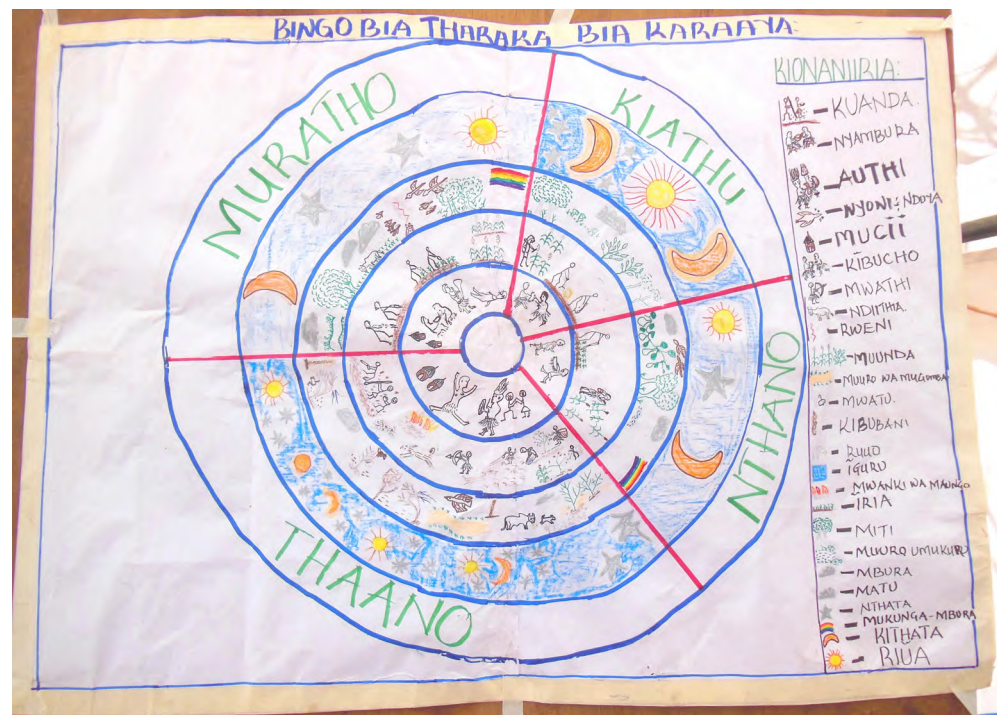 BINGO BIA THARAKA BIA KARAAYA:
MURATHO
KIATHU
NTHANO
THAANO
KIONANIIRIA:
- KUANDA.
- NYAMBURA
- AUTHI
- NYONI: NDOYA
- MUCĪĪ
- KĪBUCHO
- MWATHI
- NDITHIA
- RWENI
- MUUNDA
- MUURO WA MUGUMBA
- MWATU.
- KIBUBANI
- RUUO
- ĪGURU
- MWANKI WA MAUNGO
- IRIA
- MITI
- MUURO UMUKURU
- MBURA
- MATU
- NTHATA
MUKUNGA-MBURA
- KITHATA
- RIŨA